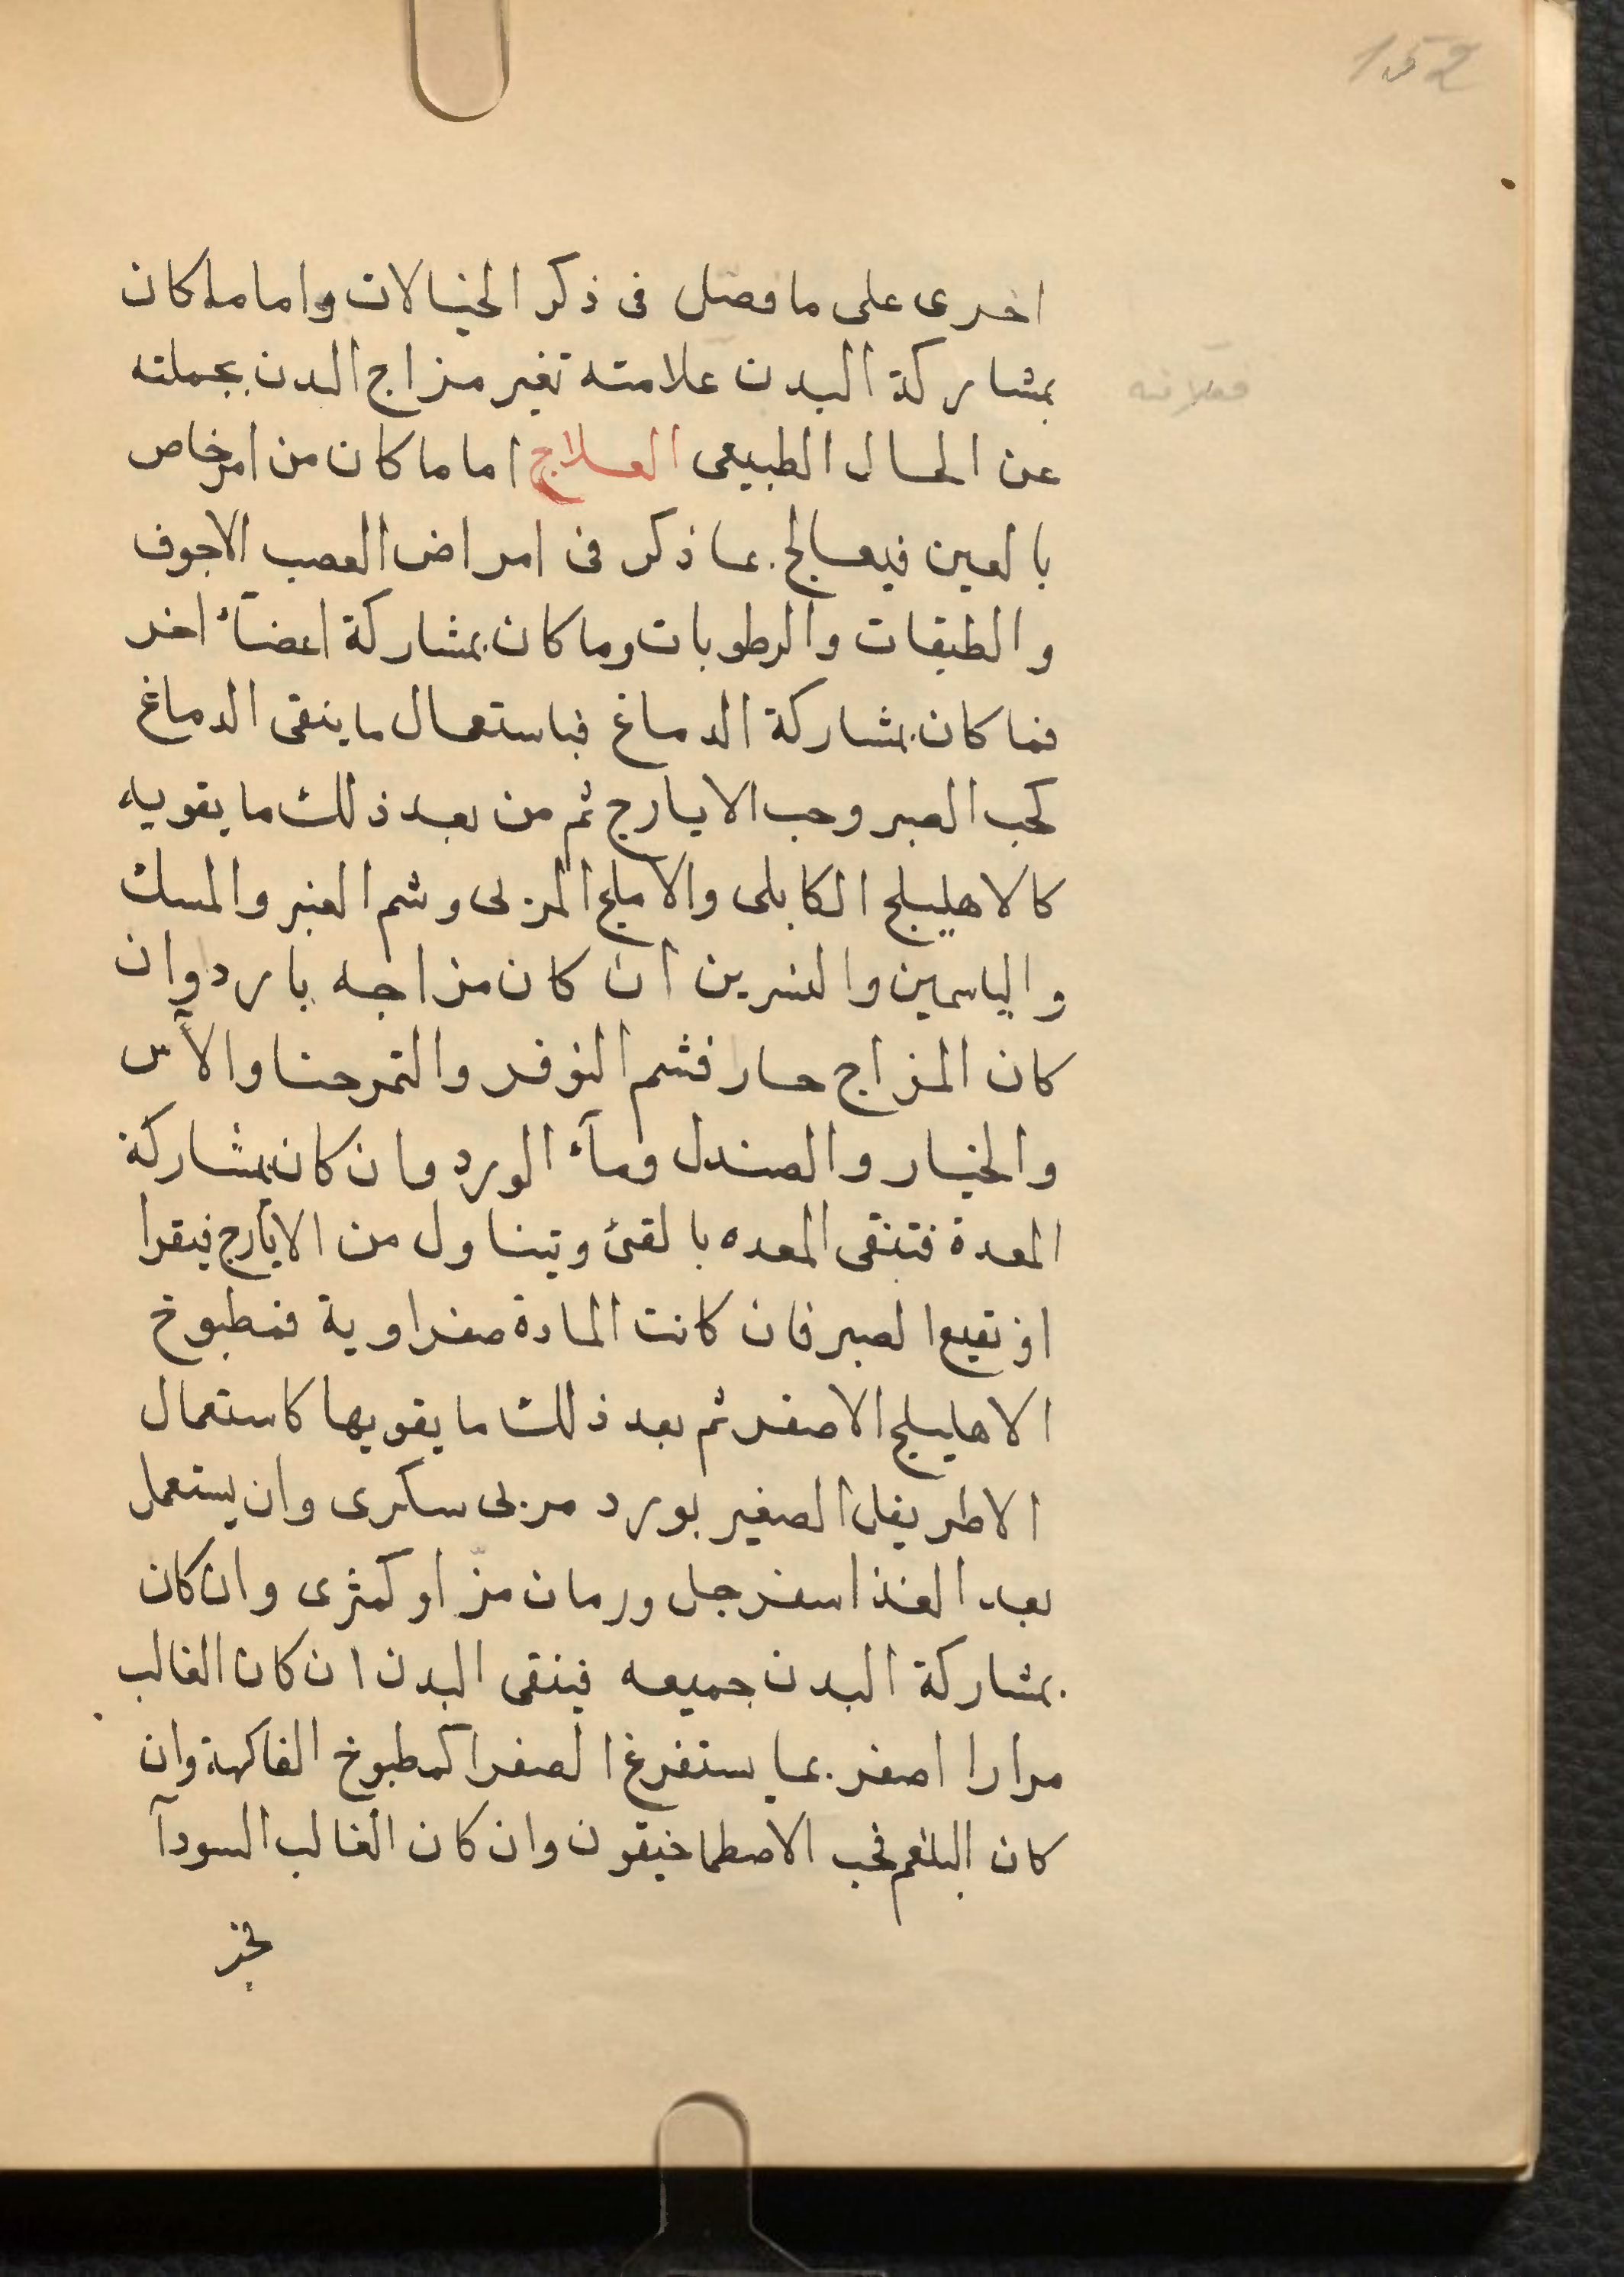 152
اخرى على ما فصّل فى ذكر الخيالات واما ما كان
بمشاركة البدن علامته تغير مزاج البدن بجملته
فعلامته
عن الحال الطبيعى العلاج اما ما كان من امر خاص
بالعين فيعالج بما ذكر فى امراض العصب الاجوف
والطبقات والرطوبات وما كان بمشاركة اعضآء اخر
فما كان بمشاركة الدماغ فباستعمال ما ينقى الدماغ
كحب الصبر وحب الايارج ثم من بعد ذلك ما يقويه
كالاهليلج الكابلى والاملج المربى وشم العنبر والمسك
والياسمين والنسرين ان كان مزاجه بارد وان
كان المزاج حار فشم النوفر والتمرحنا والآس
والخيار والصندل ومآء الورد وان كان بمشاركة
المعدة فتنقى المعده بالقئ ويتناول من الايارج فيقرا
او نقيع الصبر فان كانت المادة صفراوية فمطبوخ
الاهليلج الاصفر ثم بعد ذلك ما يقويها كاستعمال
الاطريفل الصغير بورد مربى سكرى وان يستعمل
بعد الغذا سفرجل ورمان مزّ او كمثرى وان كان
بمشاركة البدن جميعه فينقى البدن ان كان الغالب
مرارا اصفر بما يستفرغ الصفرا كمطبوخ الفاكهة وان
كان البلغم فحب الاصطماخيقون وان كان الغالب السودآ